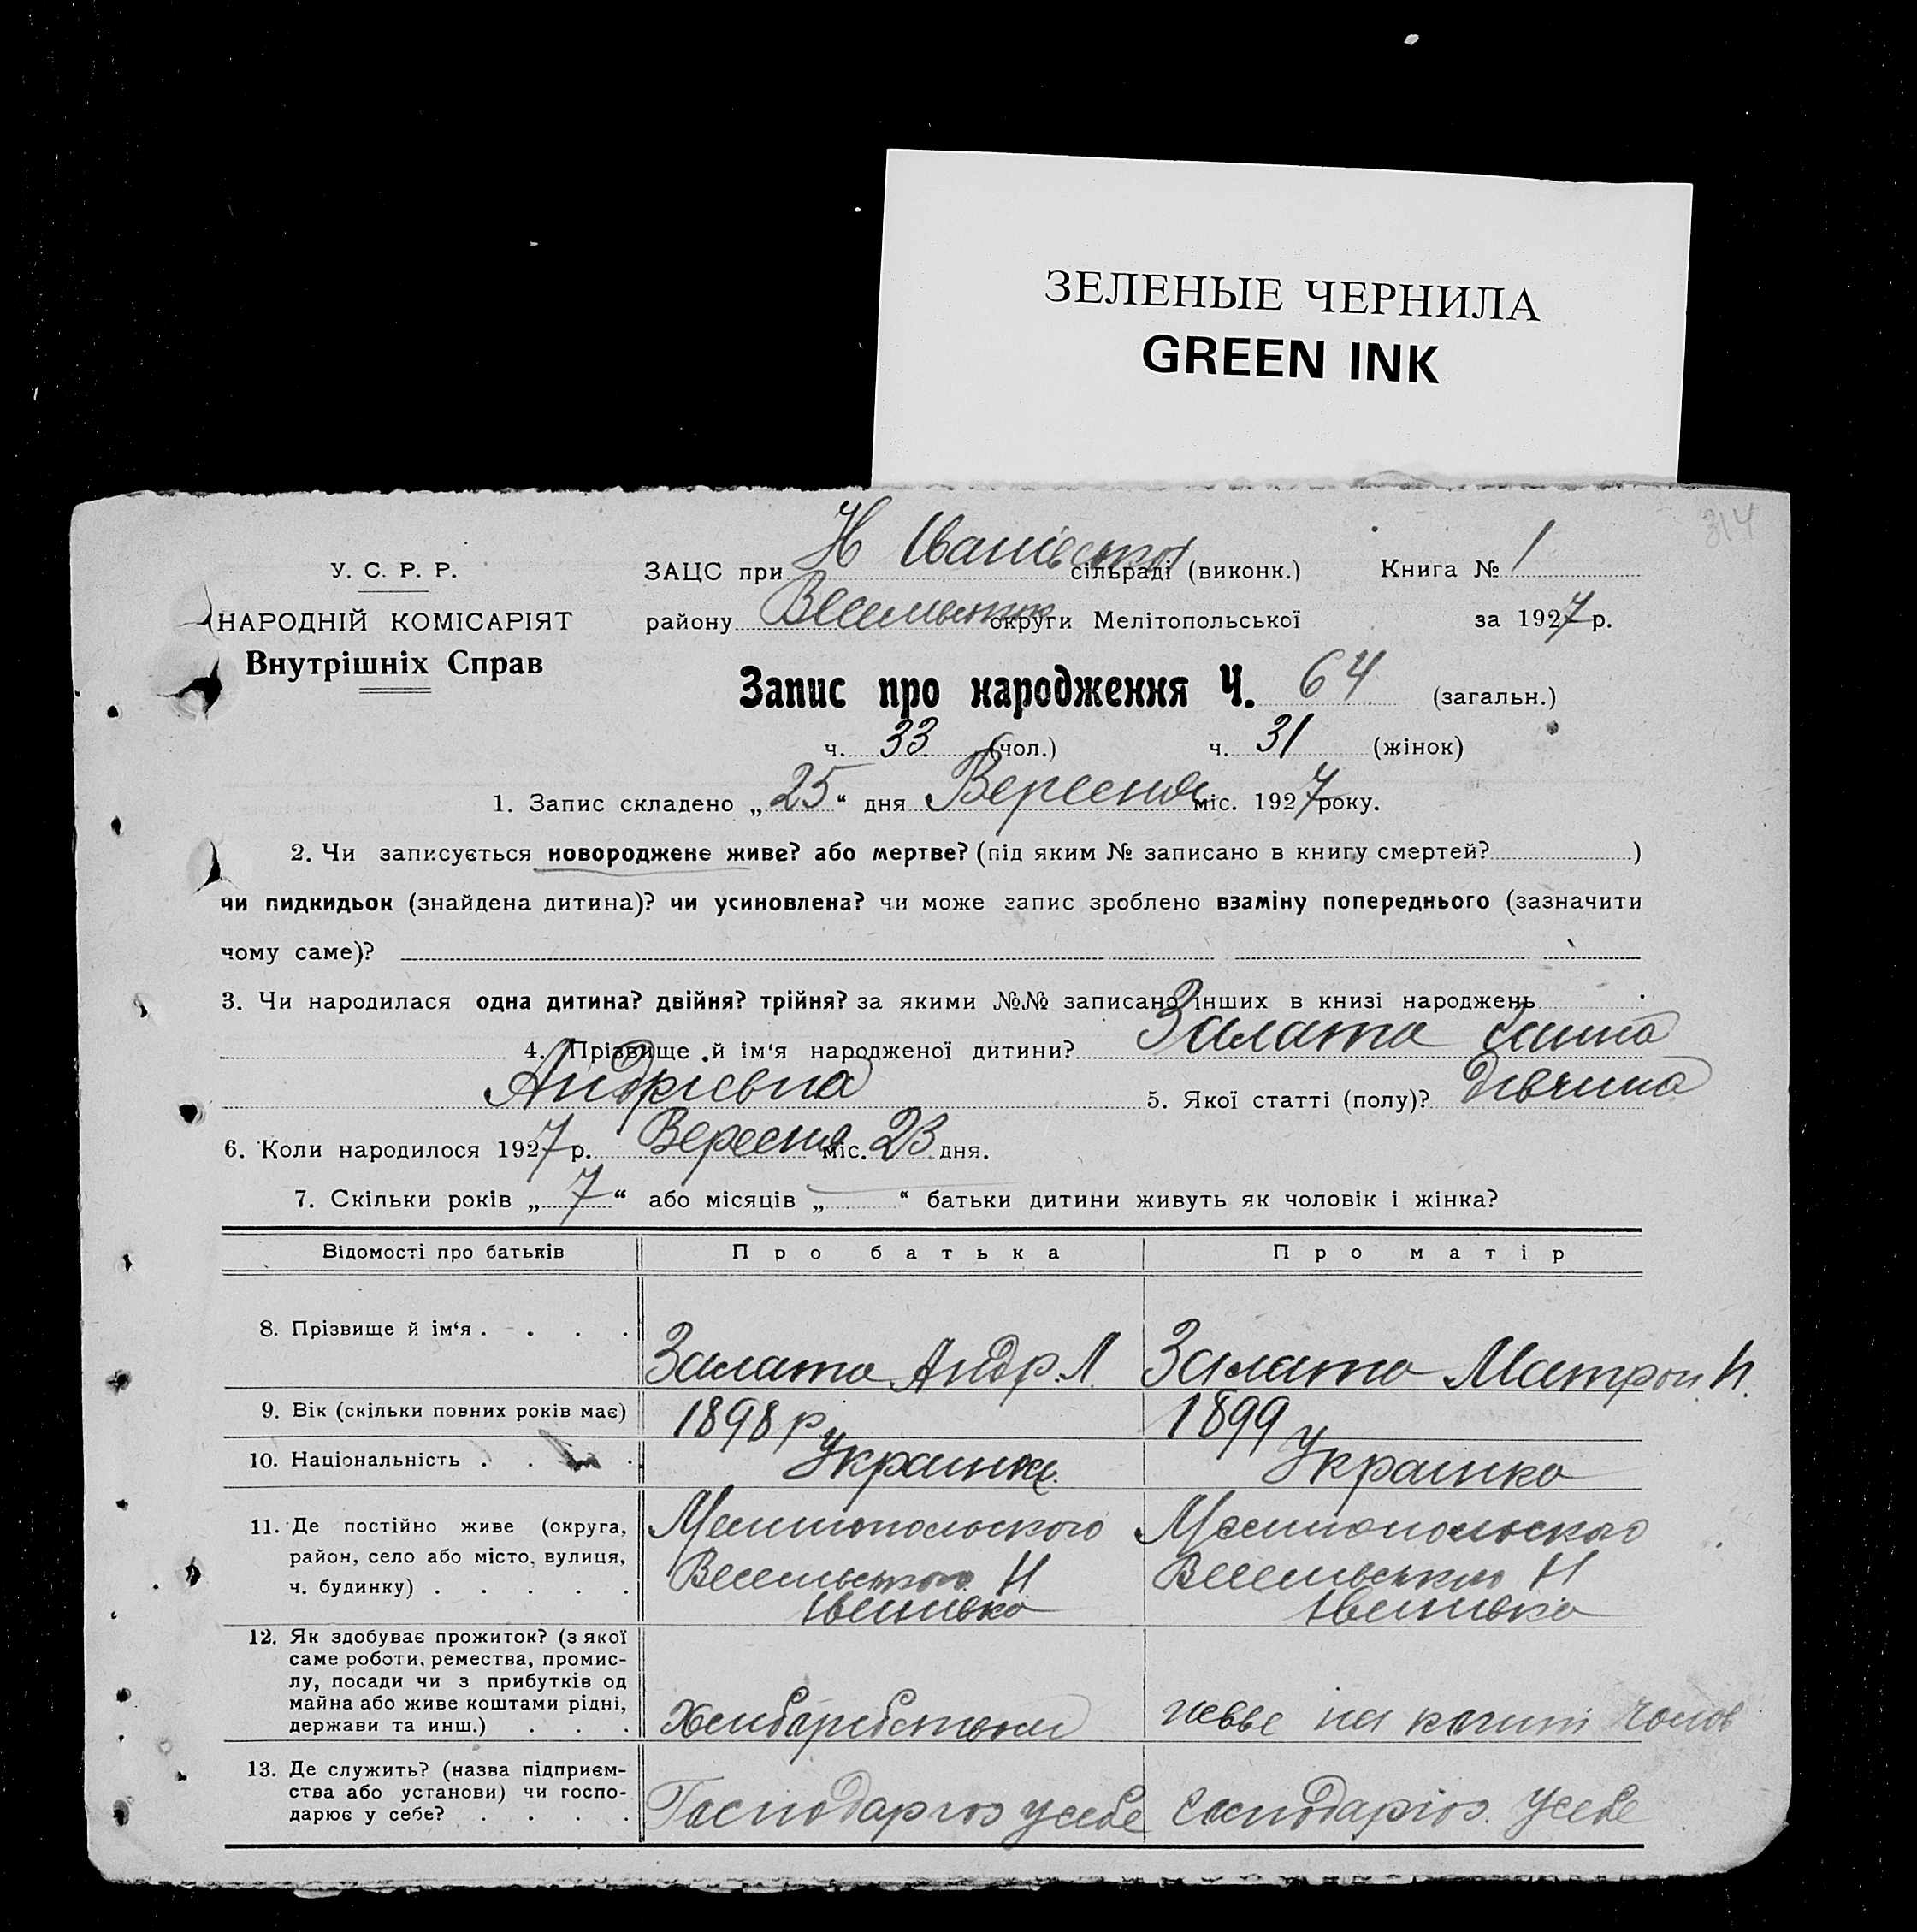 ЗЕЛЕНЫЕ ЧЕРНИЛА
GREEN INK
314
У. С. Р. Р.
НАРОДНІЙ КОМІСАРІЯТ
Внутрішніх Справ
ЗАЦС при Н Іванівської сільраді (виконк.) Книга № 1
району Веселовськ округи Мелітопольської за 1927 р.
Запис про народження Ч. 64 (загальн.)
ч. 33 (чол.) ч. 31 (жінок)
1. Запис складено „25“ дня Вересня міс. 1927 року.
2. Чи записується новороджене живе? або мертве? (під яким № записано в книгу смертей? )
чи пидкидьок (знайдена дитина)? чи усиновлена? чи може запис зроблено взаміну попереднього (зазначити
чому саме)?
3. Чи народилася одна дитина? двійня? трійня? за якими №№ записано інших в книзі народжень
4. Прізвище й ім‘я народженої дитини? Залата Ганна
Андрієвна 5. Якої статті (полу)? дівчина
6. Коли народилося 1927 р. Вересня міс. 23 дня.
7. Скільки років „7“ або місяців „ “ батьки дитини живуть як чоловік і жінка?
Відомості про батьків Про батька Про матір
8. Прізвище й ім‘я . . . . Залата Андр. Л. Залата Матрон. И.
9. Вік (скільки повних років має) 1898 р 1899
10. Національність . . . Украинец Украинка
11. Де постійно живе (округа,
район, село або місто, вулиця,
ч. будинку) . . . . .
Мелитопольского
Веселовського Н
Іванивка
Мелитопольского
Веселовського Н
Іванивка
12. Як здобуває прожиток? (з якої
саме роботи, ремества, промис-
лу, посади чи з прибутків од
майна або живе коштами рідні,
держави та инш.) . . .
Хлибаробством
живе на кошти чолов
13. Де служить? (назва підприєм-
ства або установи) чи госпо-
дарює у себе? . . . .
Господарює у себе
господарює у себе